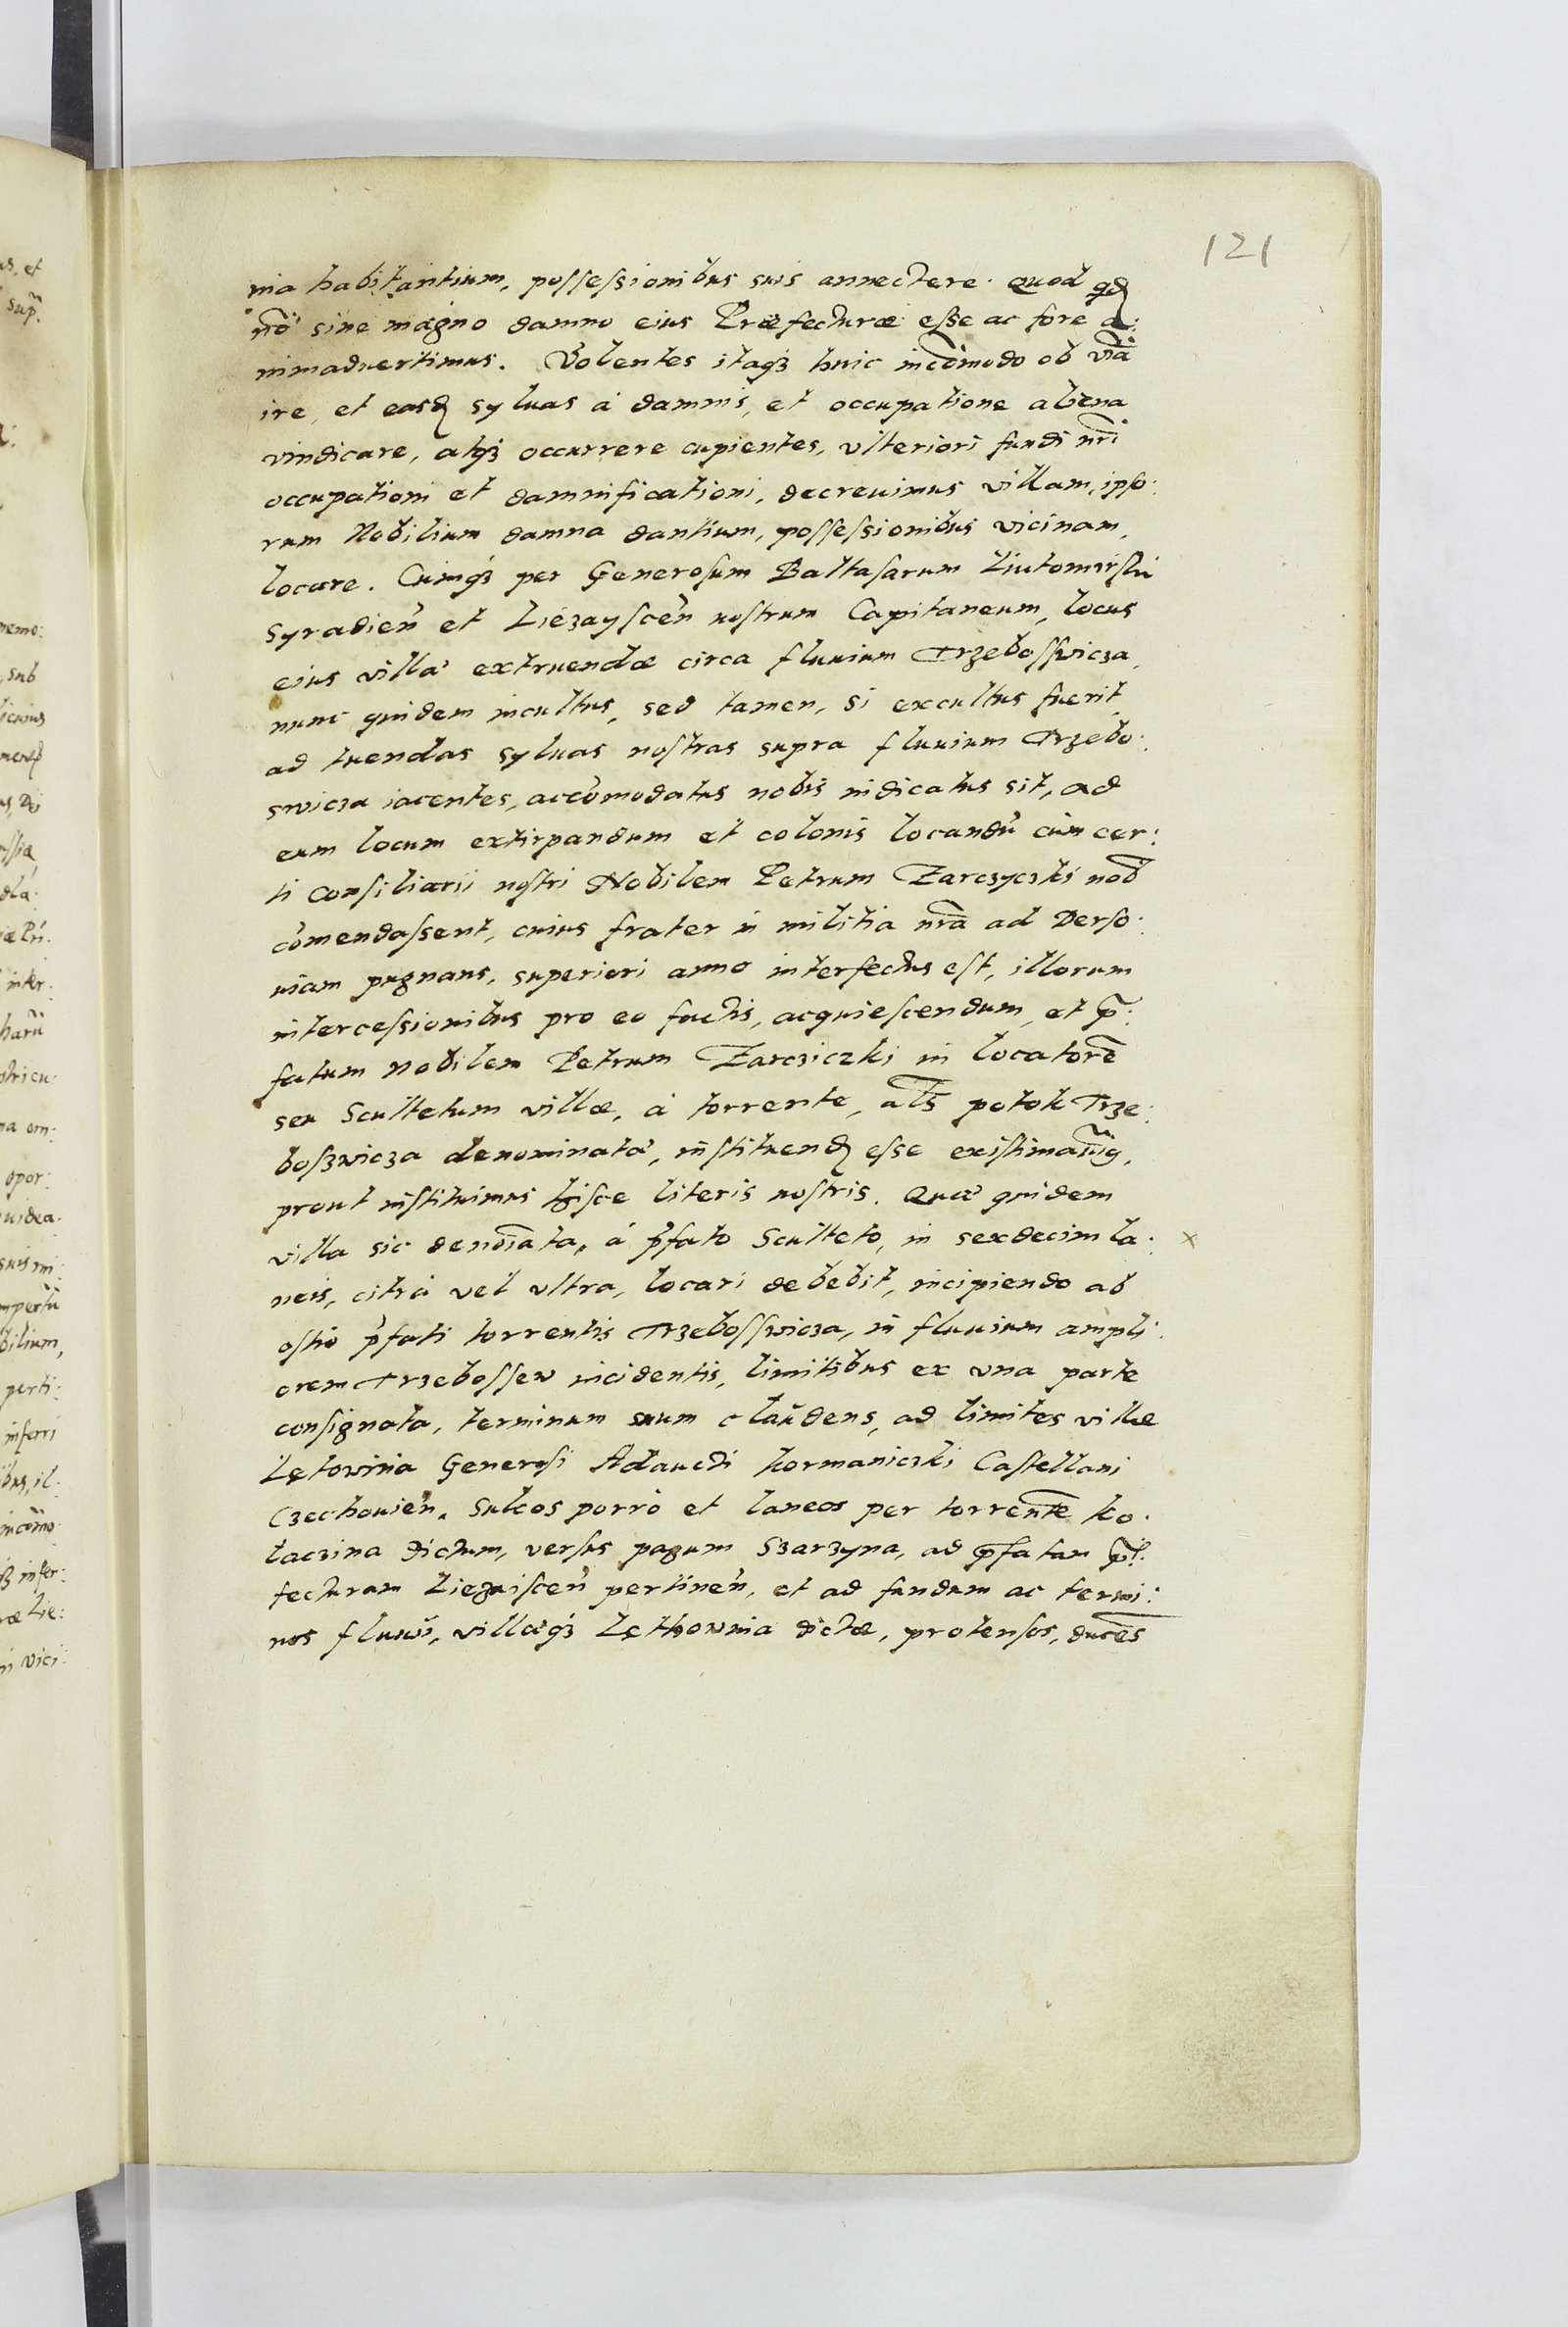 121
nia habitantium, possessionibus suis annectere. Quod qd
nō sine magno damno eius Præfecturæ esse ac fore a:
nimaduertimus. Volentes itaqȝ huic incōmodo ob viā
ire, et easd syluas à damnis, et occupatione aliena
vindicare, atqȝ occurrere cupientes, vlteriori fundi nrī
occupationi et damnificationi, decreuimus villam, ipso:
rum Nobilium damna dantium, possessionibus vicinam,
locare. Cumqȝ per Generosum Baltasarum Liutomirski
Syradień et Liezaysceń nostrum Capitaneum, locus
eius villæ extruendæ circa fluuium Trzebosswicza,
nunc quidem incultus, sed tamen, si excultus fuerit,
ad tuendas syluas nostras supra fluuium Trzebo:
swicza iacentes, accōmodatus nobis indicatus sit, ad
eum locum extirpandum et colonis locandū cùm cer:
ti consiliarii nostri Nobilem Petrum Zarczyczki nob
cōmendassent, cuius frater in militia nrā ad Derso:
uiam pugnans, superiori anno interfectus est, illorum
intercessionibus pro eo factis, acquiescendum, et p̄:
fatum nobilem Petrum Zarcziczki in locatorē
seu Scultetum villæ, à torrente, als̄ potok Trze:
boszwicza denominatæ, instituend esse existimauimg,
prout instituimus hisce literis nostris. Quæ quidem
villa sic denoīata, à p̄fato Sculteto, in sexdecim la: x
neis, citrà vel vltra, locari debebit, incipiendo ab
ostio p̄fati torrentis Trzebosswicza, in fluuium ampli:
orem Trzebossew incidentis, limitibus ex vna parte
consignata, terminum suum claudens, ad limites villæ
Lętownia Generosi Adaucti Kormaniczki Castellani
Czechouień. Sulcos porrò et laneos per torrentē Ko:
laczina dictum, versus pagum Szarzyna, ad p̄fatam p̄:
fecturam Liezaisceń pertineń, et ad fundum ac termi:
nos fluuii, villæqȝ Lęthownia dictæ, protensos, ducēs